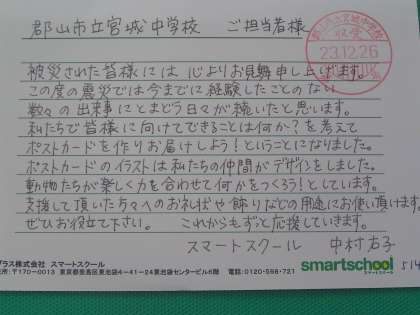 郡山市立宮城中学校 ご担当者様
郡山市立宮城中学校
収受
23.12.26
被災された皆様には 心よりお見舞申し上げます。
この度の震災では今までに経験したことのない
数々の出来事にとまどう日々が続いたと思います。
私たちで皆様に向けてできることは何か?を考えて
ポストカードを作りお届けしよう!ということになりました。
ポストカードのイラストは私たちの仲間がデザインをしました。
動物たちが楽しく力を合わせて何かをつくろう!としています。
支援して頂いた方々へのお礼状や飾りなどの用途にお使い頂けます。
ぜひお役立て下さい。 これからもずっと応援していきます。
スマートスクール 中村 右子
プラス株式会社 スマートスクール
〒170-0013 東京都豊島区東池袋4-41-24東池袋センタービル6階 電話:0120-566-721
smartschool
スマートスクール
514